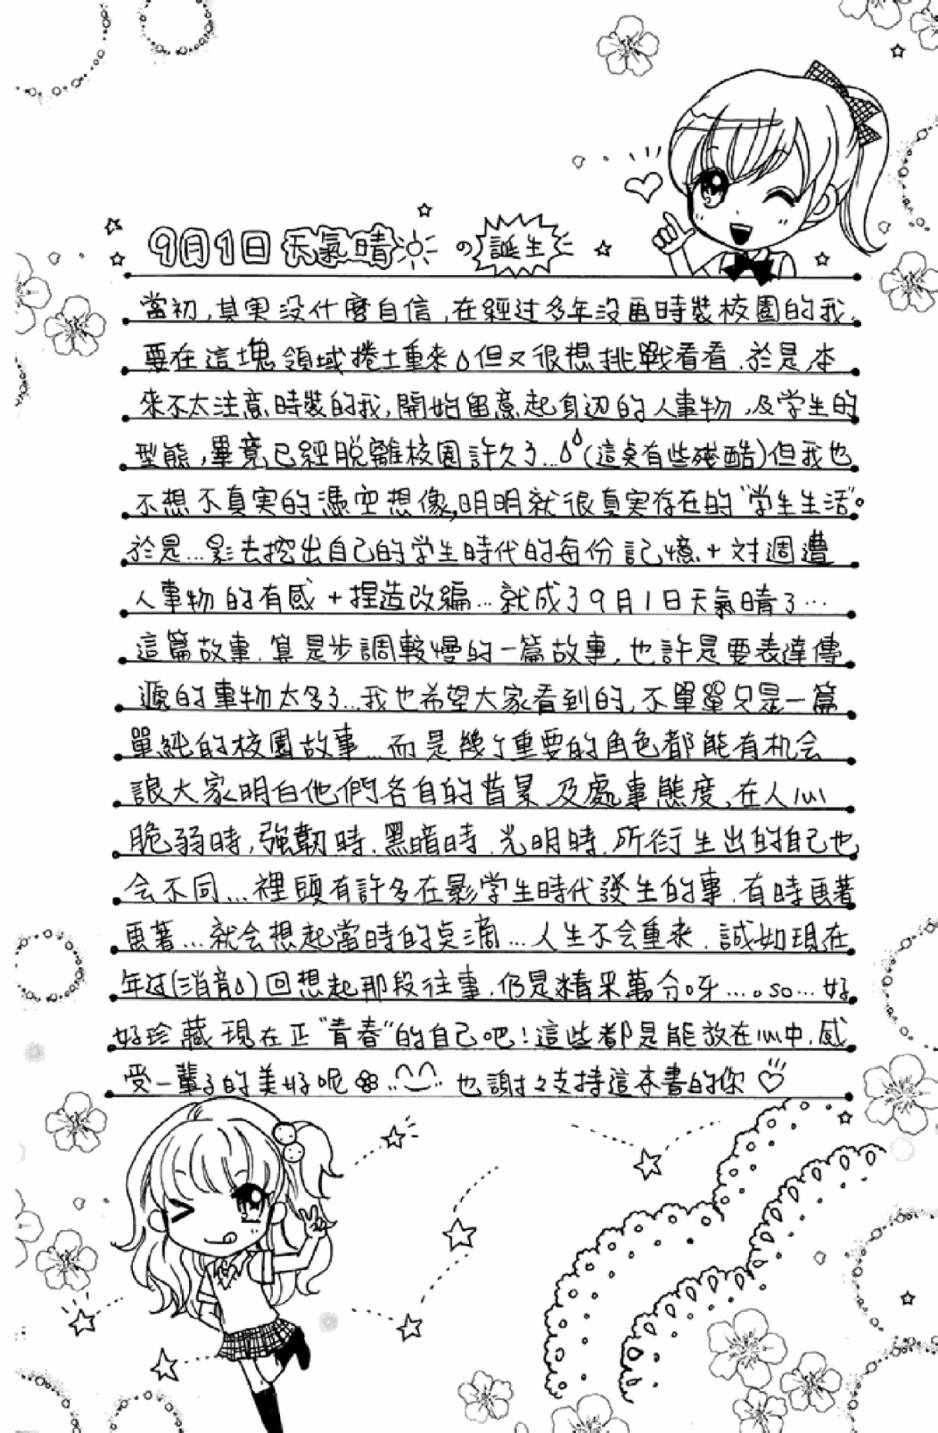 9月1日天氣晴の誕生
當初,其実沒什麼自信,在經过多年沒画時裝校園的我,
要在這塊領域捲土重來但又很想挑戰看看.於是,本
來不太注意時裝的我,開始留意起身边的人事物,及学生的
型態,畢竟已經脫離校園許久了...(這真有些殘酷)但我也
不想不真実的憑空想像,明明就很真実存在的"学生生活"。
於是...影去挖出自己的学生時代的每份記憶+对週遭
人事物的有感+捏造改編...就成了9月1日天氣晴了...
這篇故事.算是步調較慢的一篇故事,也許是要表達傳
遞的事物太多了...我也希望大家看到的,不單單只是一篇
單純的校園故事...而是幾个重要的角色都能有机会
讓大家明白他們各自的背景,及處事態度,在人心
脆弱時,強韌時.黑暗時.光明時.所衍生出的自己也
会不同...裡頭有許多在影学生時代發生的事.有時画著
画著...就会想起當時的点滴...人生不会重來.誠如現在
年过(消音)回想起那段往事.仍是精采萬分呀....so...好
好珍藏現在正"青春"的自己吧!這些都是能放在心中.感
受一輩子的美好呢 也謝謝支持這本書的你